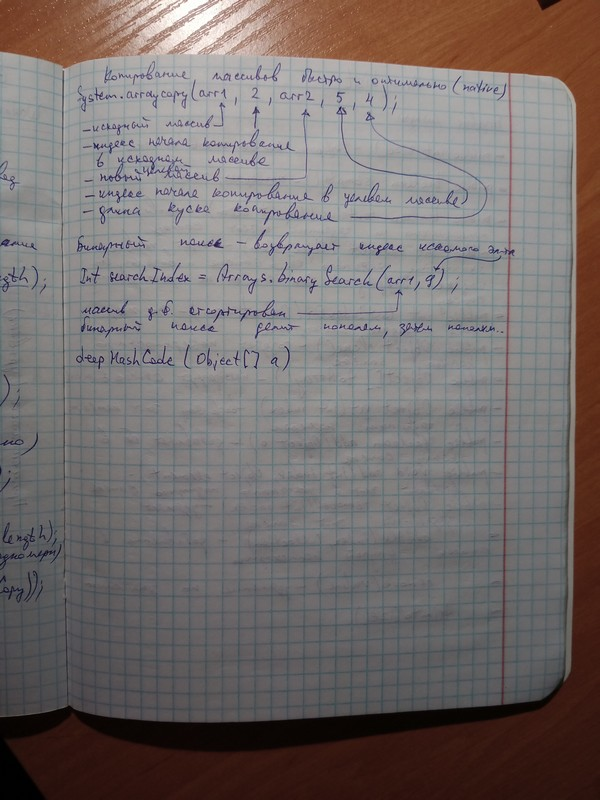 вод
ание
ngth);
);
но)
);
length);
одномерн)
Copy));
Копирование массивов быстро и оптимально (native)
System.arraycopy(arr1, 2, arr2, 5, 4);
- исходный массив
- индекс начала копирования
в исходном массиве
целевой
- новый массив
- индекс начала копирования в целевом массиве
- длина куска копирования
Бинарный поиск - возвращает индекс искомого эл-та
Int searchIndex = Arrays.binarySearch(arr1, 9);
массив д.б. отсортирован
бинарный поиск делит пополам, затем половки..
deepHashCode (Object[] a)